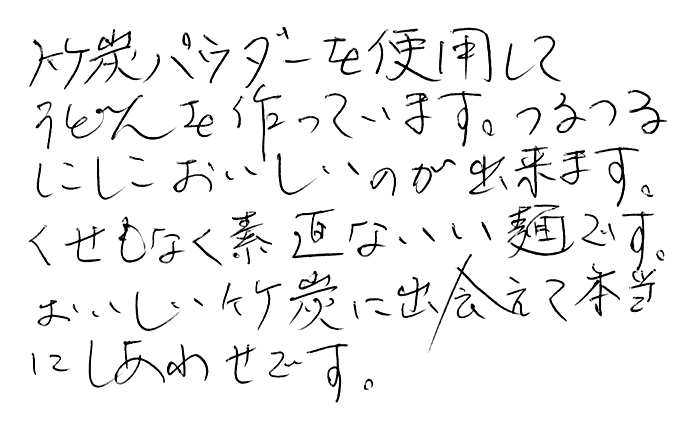 竹炭パウダーを使用して
うどんを作っています。つるつる
しこしこおいしいのが出来ます。
くせもなく素直ないい麺です。
おいしい竹炭に出会えて本当
にしあわせです。